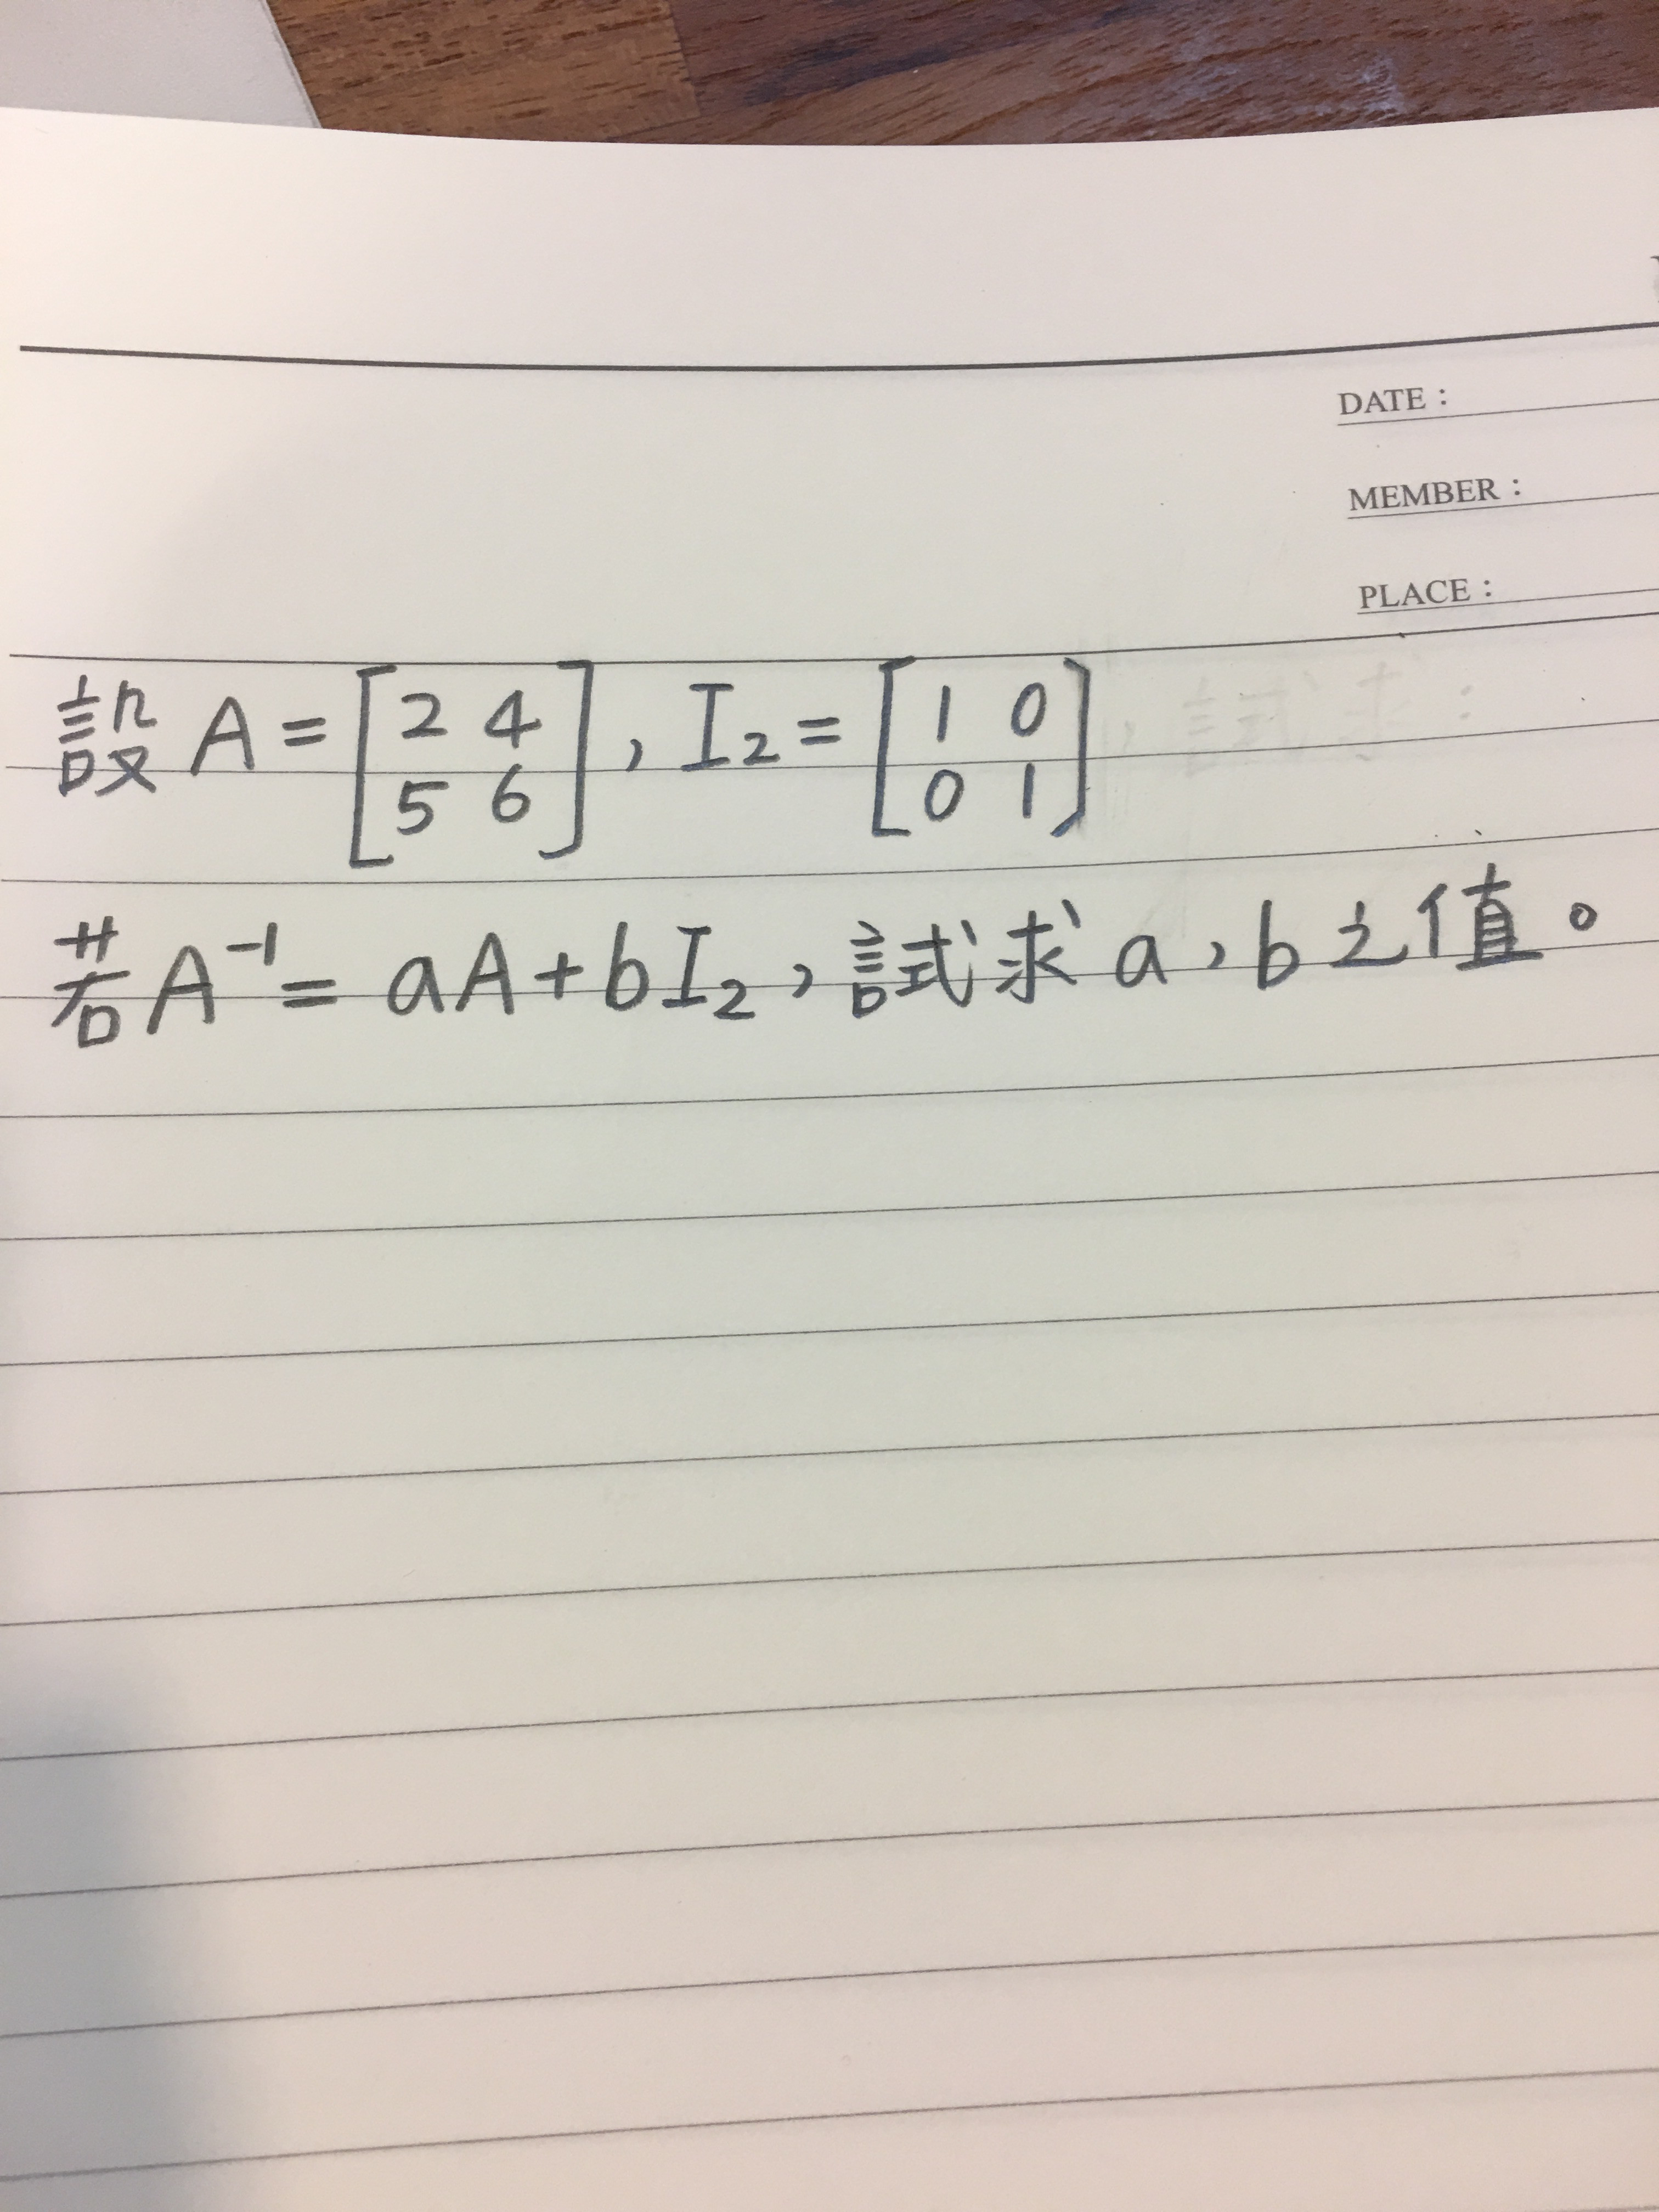 DATE：
MEMBER：
PLACE：
設 A = [2 4; 5 6], I₂ = [1 0; 0 1]
若 A⁻¹ = aA + bI₂, 試求 a, b 之值。